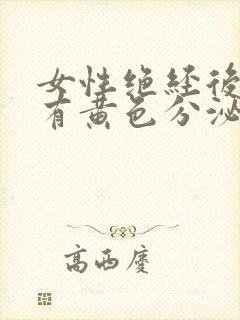 女性绝经後
有黄色分泌
高西庆